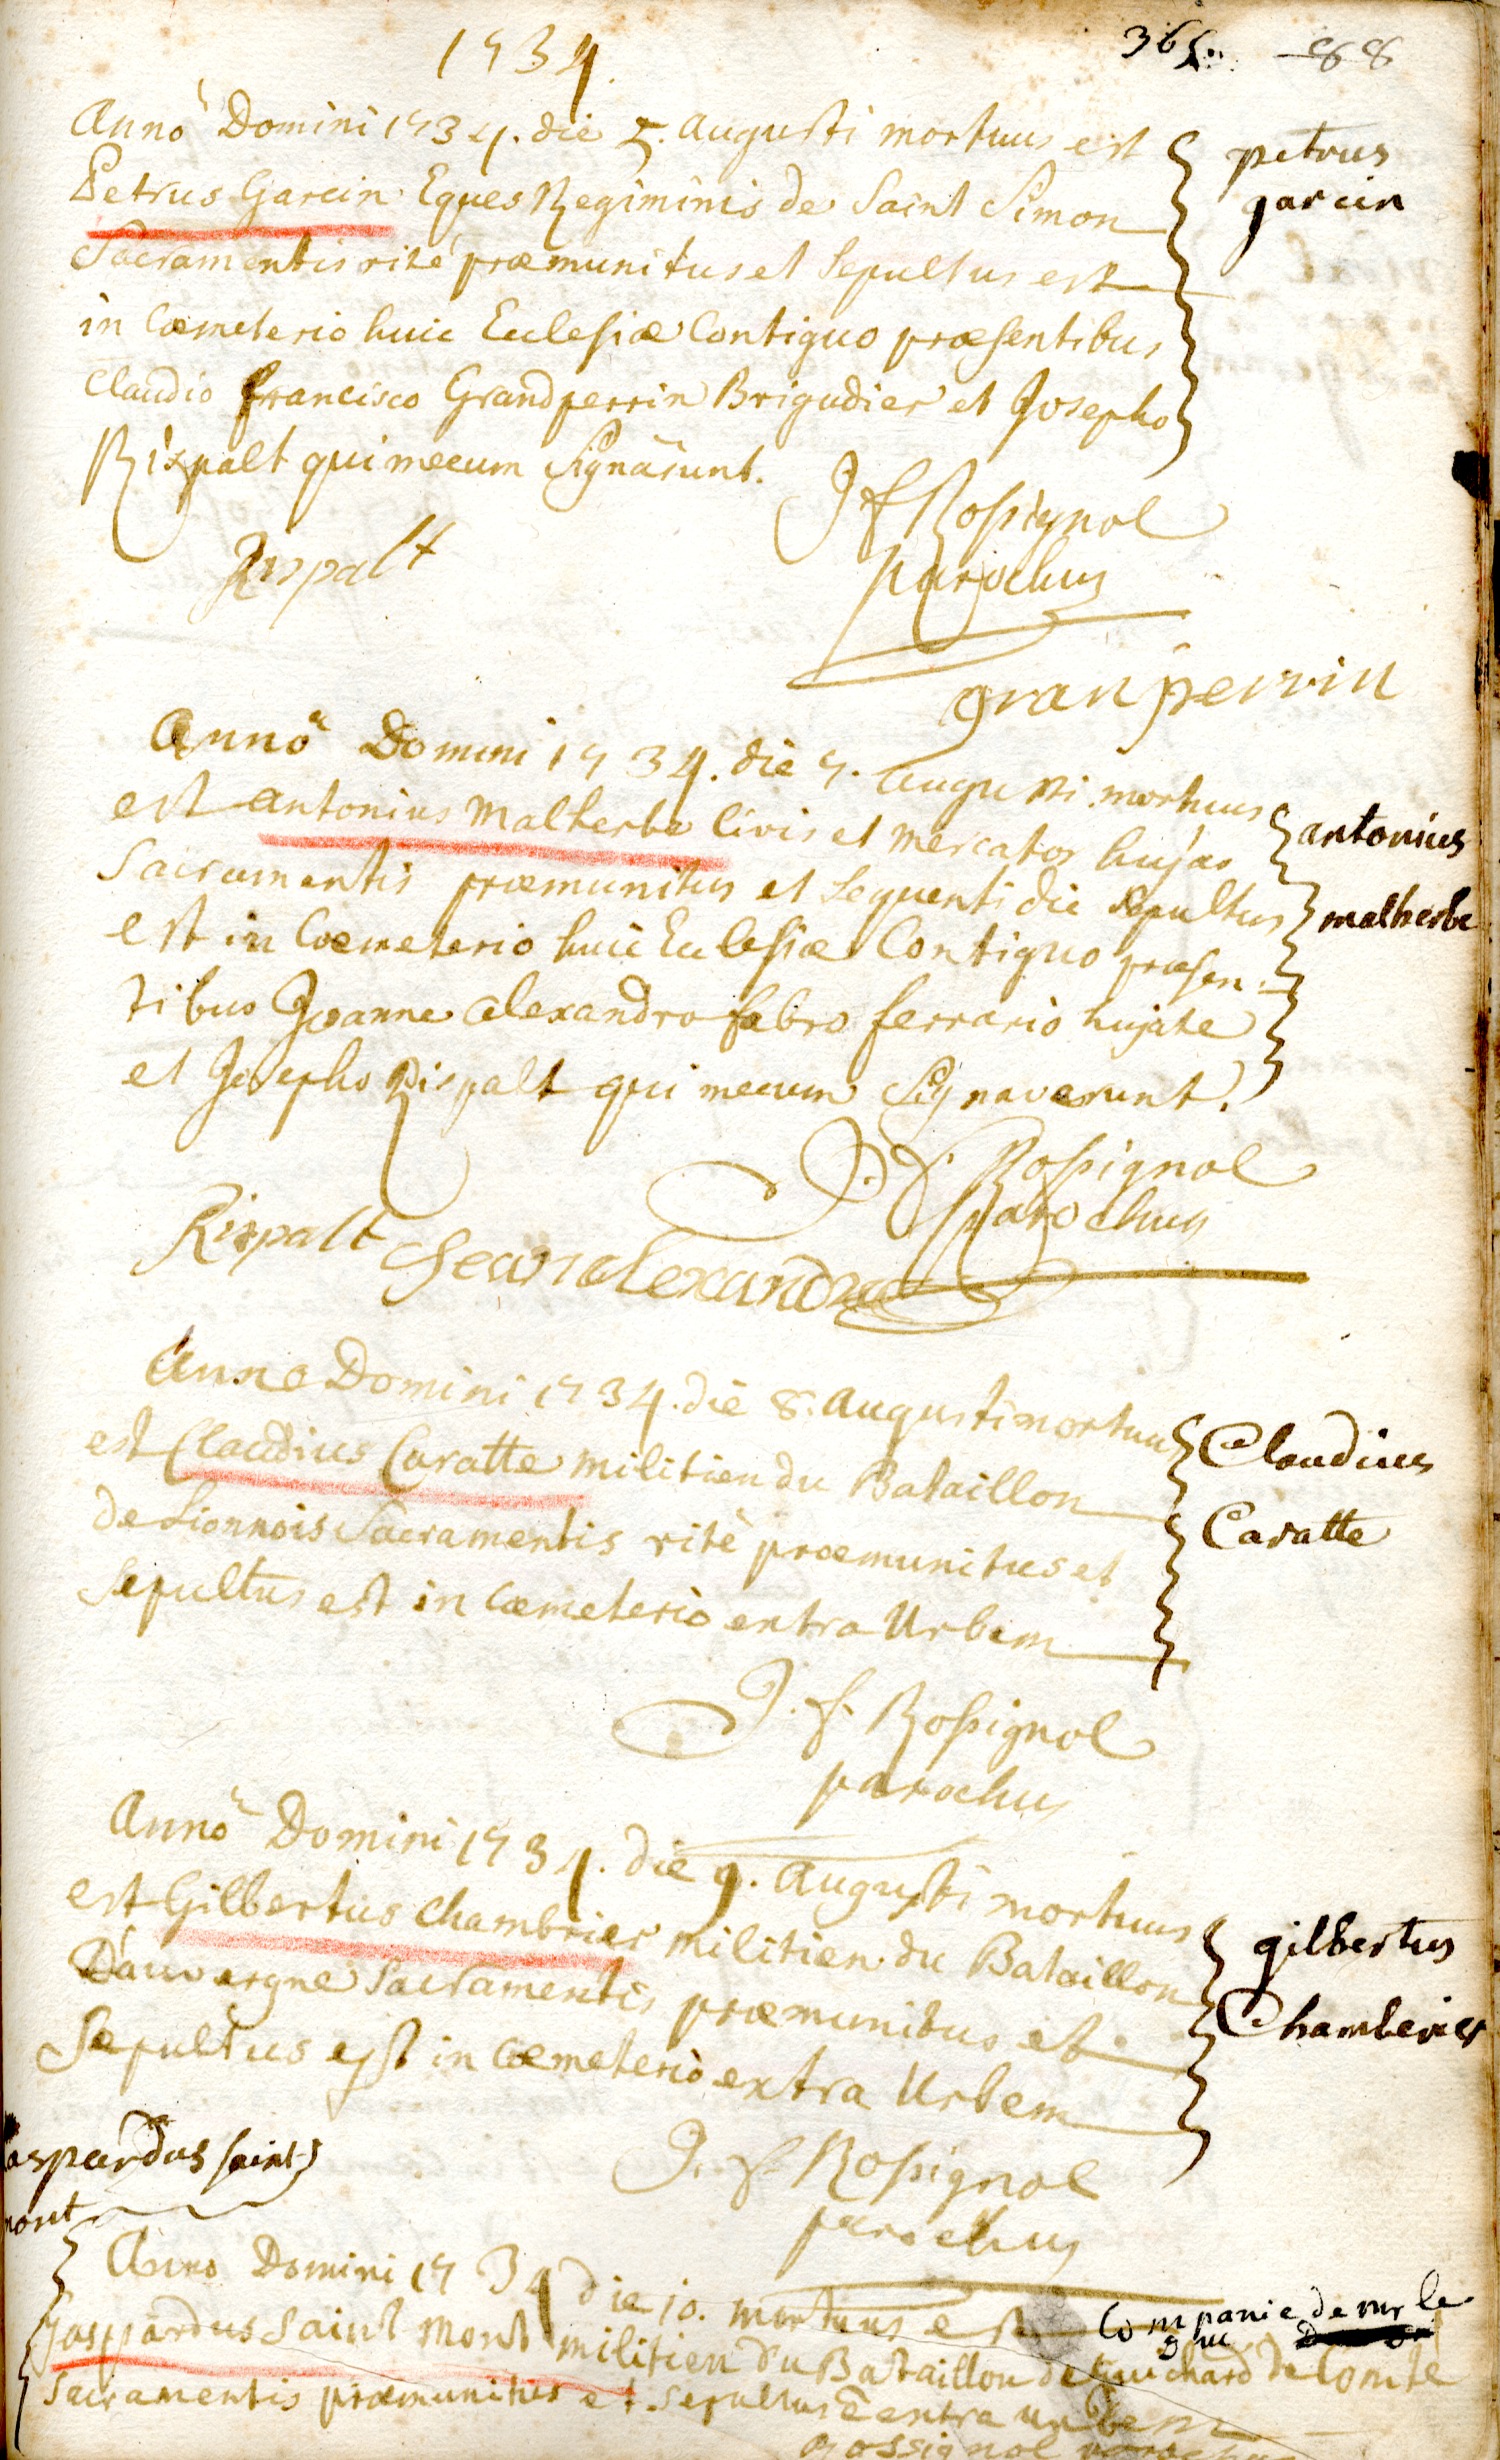 1734.
365. 88
Anno Domini 1734. die 5. augusti mortuus est
Petrus Garcin Eques Regiminis de Saint Simon
Sacramentis rité præmunitus et Sepultus est
in Cœmeterio huic Ecclesiæ Contiguo præsentibus
Claudio francisco Grandperrin Brigadier et Josepho
Rispalt qui mecum Signârunt.
petrus
garcin
J f Rossignol
parochus
Rispalt
granperrin
Anno Domini 1734. die 7. augusti mortuus
est antonius Malherbe Civis et Mercator hujas
Sacramentis præmunitus et Sequenti die Sepultus
est in Cœmeterio huic Ecclesiæ Contiguo præsen-
tibus Joanne alexandro fabro ferrario hujate
et Josepho Rispalt qui mecum Signaverunt.
antonius
malherbe
J. f. Rossignol
parochus
Rispalt Jean alexandre
Anno Domini 1734. die 8. augusti mortuus
est Claudius Caratte militien du Bataillon
de Lionnois Sacramentis rité præmunitus et
Sepultus est in Cœmeterio extra Urbem
Claudius
Caratte
J. f. Rossignol
parochus
Anno Domini 1734. die 9. augusti mortuus
est Gilbertus Chambrier militien du Bataillon
D'auvergne Sacramentis præmunitus et
Sepultus est in Cœmeterio extra Urbem
gilbertus
Chamberier
J. f. Rossignol
parochus
aspardus saint
mont
Anno Domini 1734 die 10. mortuus est Companie de mr le
Gaspardus Saint Mont militien Du Bataillon de Guichard de Comte
Sacramentis præmunitus et Sepultus ē extra urbem
Rossignol parochus